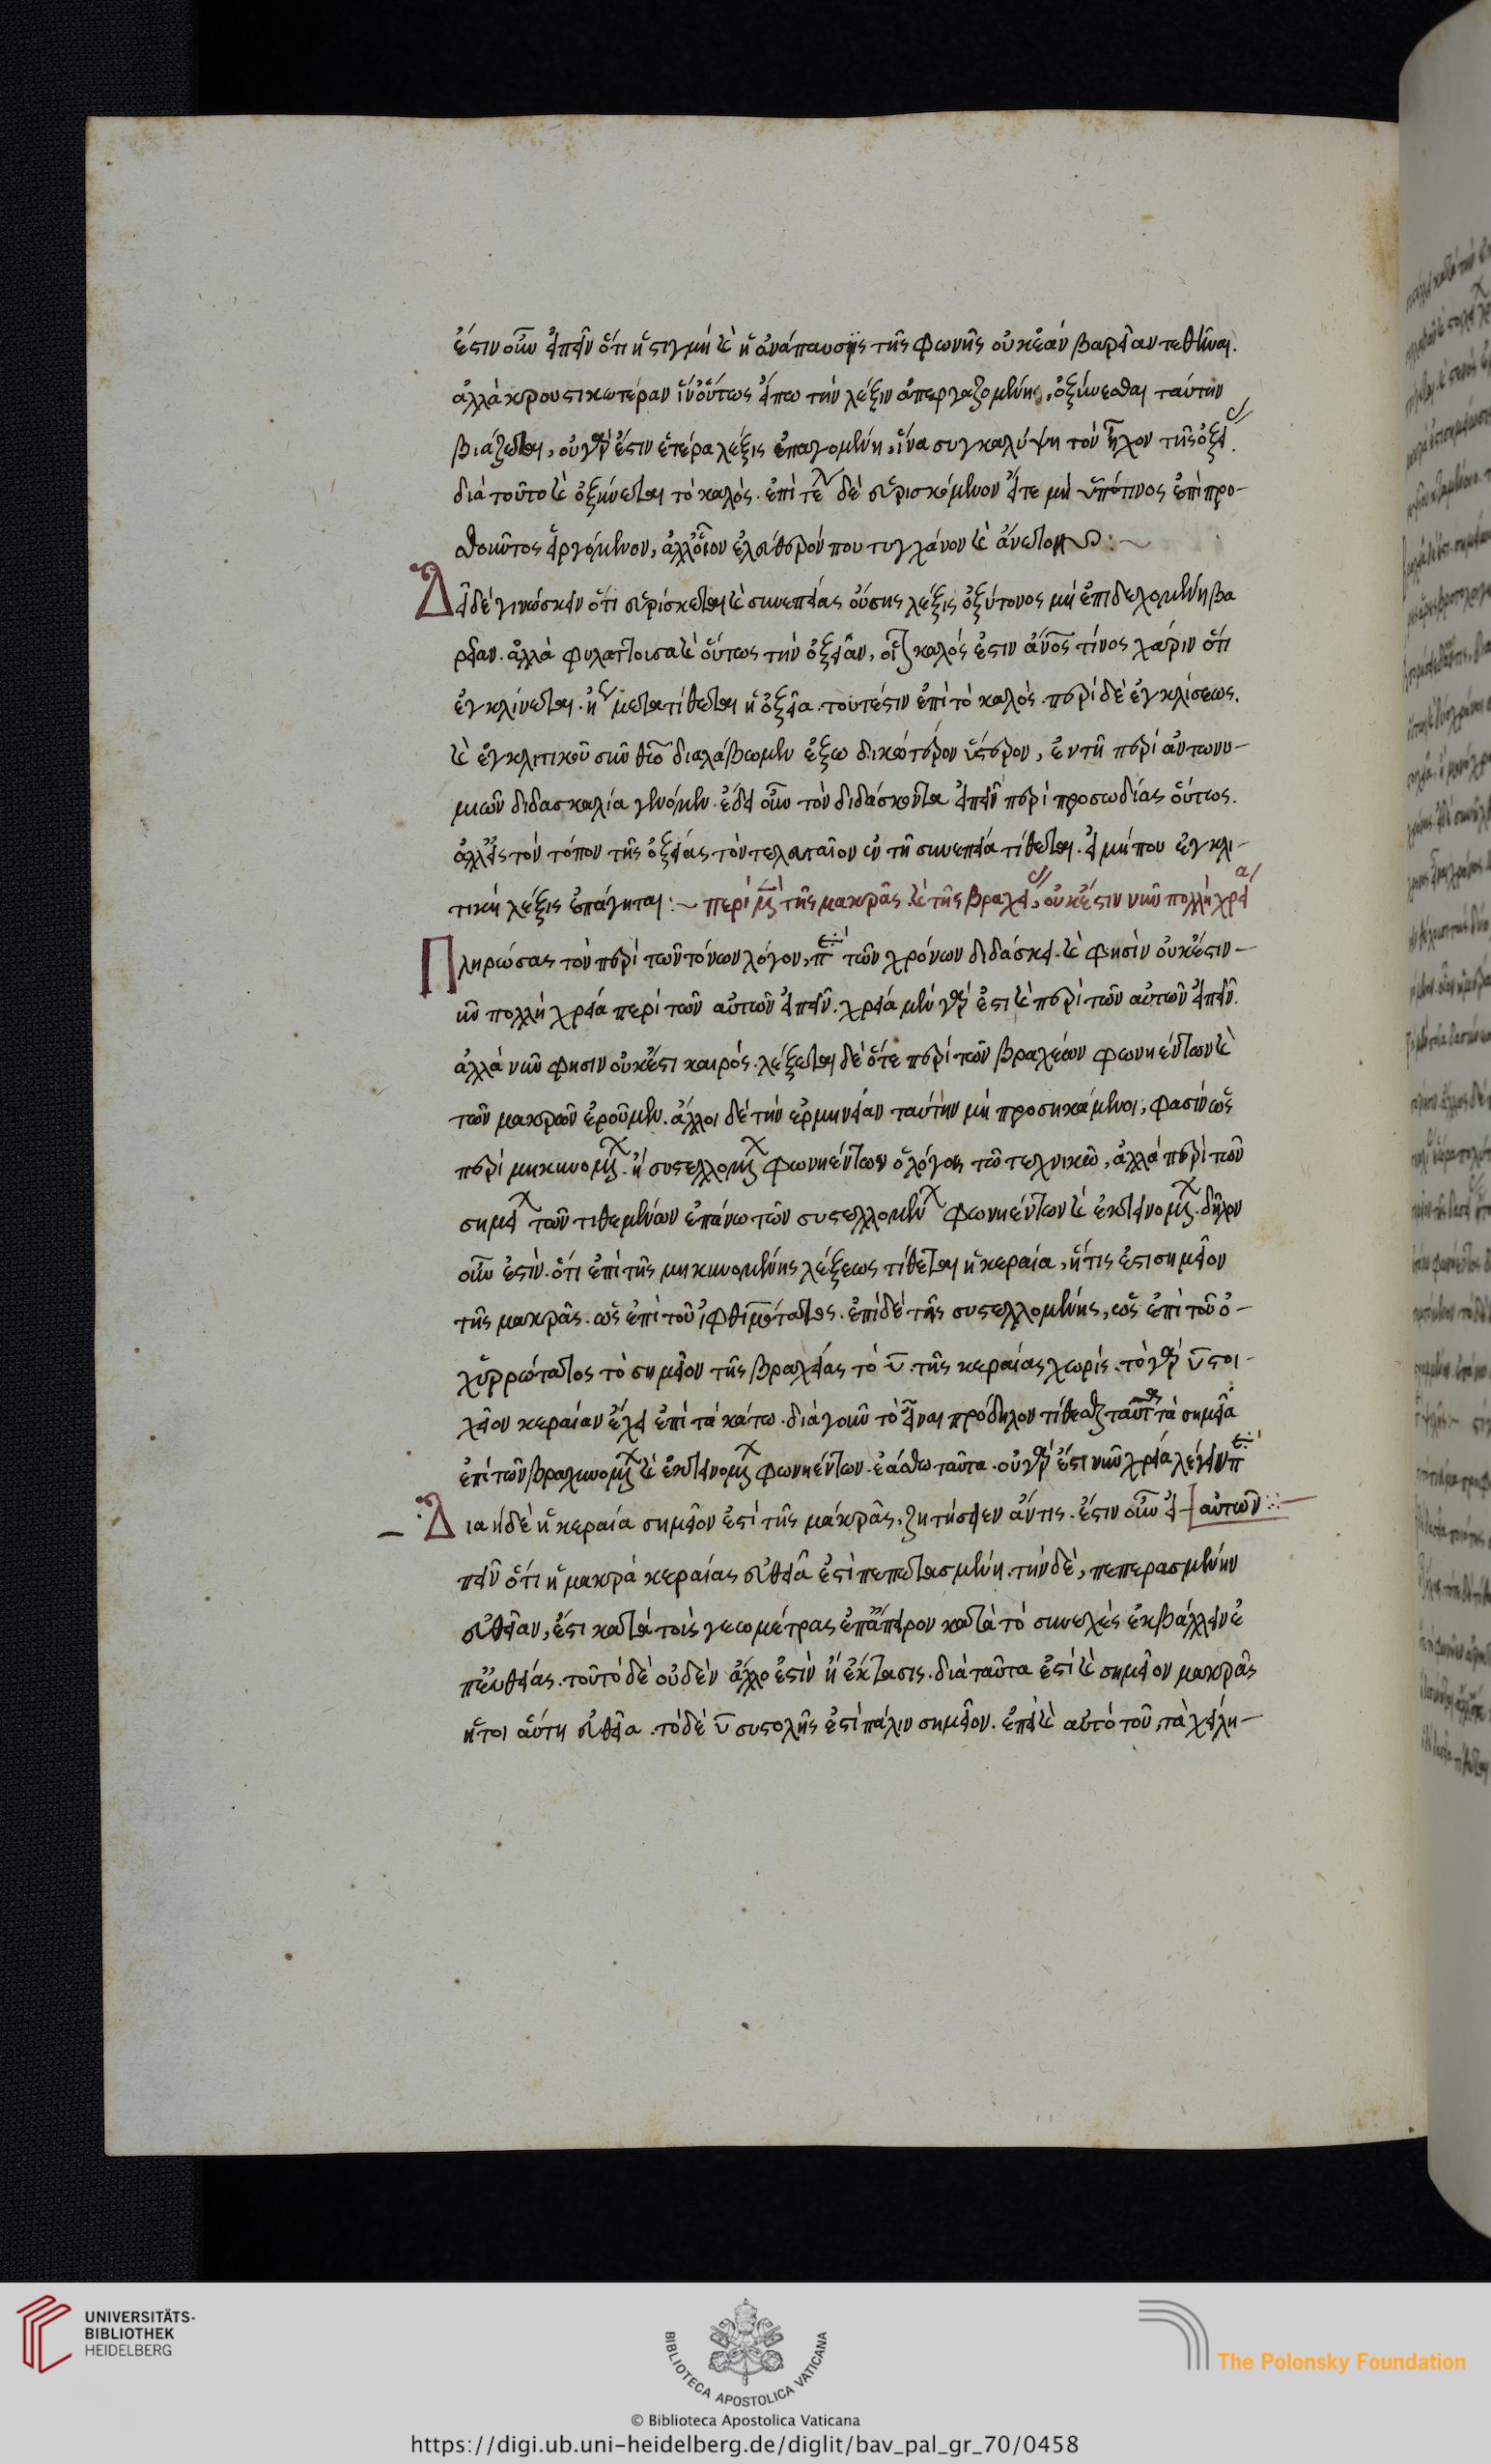 ἔστιν οὖν εἰπεῖν ὅτι ἡ στιγμὴ καὶ ἡ ἀνάπαυσις τῆς φωνῆς οὐκ ἐᾶν βαρεῖαν τεθῆναι.
ἀλλὰ κρουστικωτέραν ἵν' οὕτως εἴπω τὴν λέξιν ἀπεργαζομένης, ὀξύνεσθαι ταύτην
βιάζεται, οὐ γάρ ἐστιν ἑτέρα λέξις ἐπαγομένη, ἵνα συγκαλύψη τὸν ἦχον τῆς ὀξεί
διὰ τοῦτο καὶ ὀξύνεται τὸ καλός. ἐπὶ τέλ δὲ εὑρισκόμενον εἴτε μὴ ὑπό τινος ἐπιπρο-
σθοῦντος εἰργόμενον, ἀλλ' οἷον ἐλεύθερόν που τυγχάνον καὶ ἄνετον:
Δεῖ δὲ γινώσκειν ὅτι εὑρίσκεται καὶ συνεπείας οὔσης λέξις ὀξύτονος μὴ ἐπιδεχομένη βα
ρεῖαν. ἀλλὰ φυλάττουσα καὶ οὕτως τὴν ὀξεῖαν, οἷον καλός ἐστιν ἄνος τίνος χάριν ὅτι
ἐγκλίνεται. ἡ μετατίθεται ἡ ὀξεῖα. τουτέστιν ἐπὶ τὸ καλός. περὶ δὲ ἐγκλίσεως.
καὶ ἐγκλιτικοῦ σὺν θεῷ διαλάβωμεν ἔξω δικώτερον ὕστερον, ἐν τῆ περὶ ἀντωνυ-
μιῶν διδασκαλία γενόμεν. ἔδει οὖν τὸν διδάσκοντα εἰπεῖν περὶ προσωδίας οὕτως.
ἀλλ' εἰς τὸν τόπον τῆς ὀξείας τὸν τελευταῖον ἐν τῆ συνεπεία τίθεται. εἰ μή που ἐγκλι-
τικὴ λέξις ἐπάγηται: περὶ μὲν τῆς μακρᾶς καὶ τῆς βραχεί, οὐκ ἔστιν νῦν πολλὴ χρεία
Πληρώσας τὸν περὶ τῶν τόνων λόγον, περὶ τῶν χρόνων διδάσκει. καὶ φησὶν οὐκ ἔστιν-
νῦν πολλὴ χρεία περὶ τῶν αὐτῶν εἰπεῖν. χρεία μὲν γάρ ἐστι καὶ περὶ τῶν αὐτῶν εἰπεῖν.
ἀλλὰ νῦν φησιν οὐκ ἔστι καιρός. λέξεται δὲ ὅτε περὶ τῶν βραχέων φωνηέντων καὶ
τῶν μακρῶν ἐροῦμεν. ἄλλοι δὲ τὴν ἑρμηνείαν ταύτην μὴ προσηκάμενοι, φασὶν ὡς
περὶ μηκυνομεν. ἢ συστελλομεν φωνηέντων ὁ λόγος τῶ τεχνικῶ, ἀλλὰ περὶ τῶν
σημεί τῶν τιθεμένων ἐπάνω τῶν συστελλομεν φωνηέντων καὶ ἐκτεινομεν. δῆλον
οὖν ἐστίν. ὅτι ἐπὶ τῆς μηκυνομένης λέξεως τίθεται ἡ κεραία, ἥτις ἐστὶ σημεῖον
τῆς μακρᾶς. ὡς ἐπὶ τοῦ ἰφθιμότατος. ἐπὶ δὲ τῆς συστελλομένης, ὡς ἐπὶ τοῦ ὀ-
χυρρώτατος τὸ σημεῖον τῆς βραχείας τὸ υ. τῆς κεραίας χωρίς. τὸ γὰρ υ στοι-
χεῖον κεραίαν ἔχει ἐπὶ τὰ κάτω. διὰ γοῦν τὸ εἶναι πρόδηλον τίθεσθαι ταῦτα τὰ σημεῖα
ἐπὶ τῶν βραχυνομεν καὶ ἐκτεινομεν φωνηέντων. ἐάσθω ταῦτα. οὐ γάρ ἐστι νῦν χρεία λέγειν περὶ
αὐτῶν
Διατί δὲ ἡ κεραία σημεῖον ἐστὶ τῆς μακρᾶς, ζητήσειεν ἄν τις. ἔστιν οὖν εἰ-
πεῖν ὅτι ἡ μακρὰ κεραίας εὐθεῖα ἐστὶ πεπετασμένη. τὴν δὲ, πεπερασμένην
εὐθεῖαν, ἔστι κατὰ τοὺς γεωμέτρας ἐπ' ἄπειρον κατὰ τὸ συνεχὲς ἐκβάλλειν ἐ
π' εὐθείας. τοῦτο δὲ οὐδὲν ἄλλο ἐστὶν ἢ ἔκτασις. διὰ ταῦτα ἐστὶ καὶ σημεῖον μακρᾶς
ἤτοι αὕτη εὐθεῖα. τὸ δὲ υ συστολῆς ἐστὶ πάλιν σημεῖον. ἐπεὶ καὶ αὐτὸ τοῦ, τὰ χείλη-
UNIVERSITÄTS-
BIBLIOTHEK
HEIDELBERG
BIBLIOTECA APOSTOLICA VATICANA
The Polonsky Foundation
© Biblioteca Apostolica Vaticana
https://digi.ub.uni-heidelberg.de/diglit/bav_pal_gr_70/0458